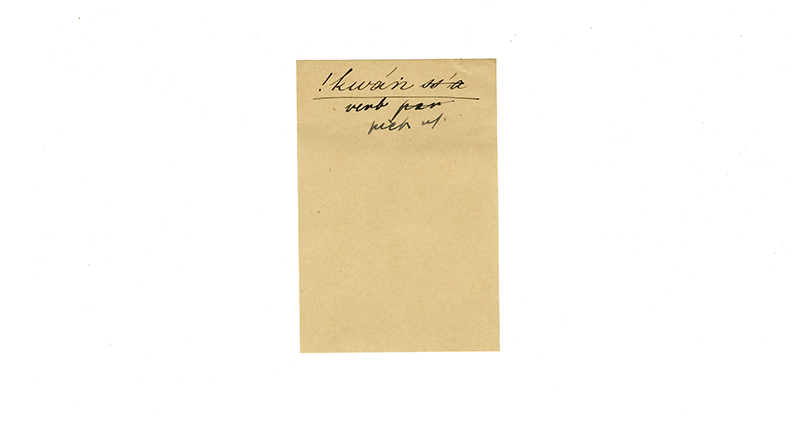 !kwáṅ ss'a
verb par
pick up.